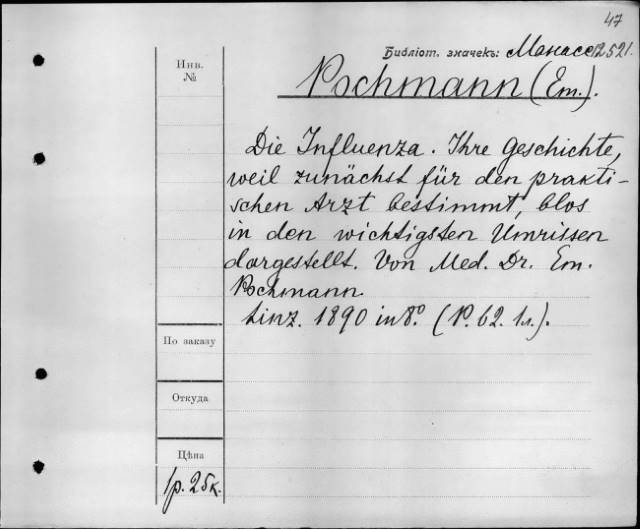 47
Библіот. значекъ: Манассе 12521.
Инв.
№
Pochmann (Em.).
Die Influenza. Ihre Geschichte,
weil zunächst für den prakti-
schen Arzt bestimmt, blos
in den wichtigsten Umrissen
dargestellt. Von Med. Dr. Em.
Pochmann.
Linz. 1890 in 8°. (P. 62. 1л.).
По заказу
Откуда
Цѣна
1р. 25к.